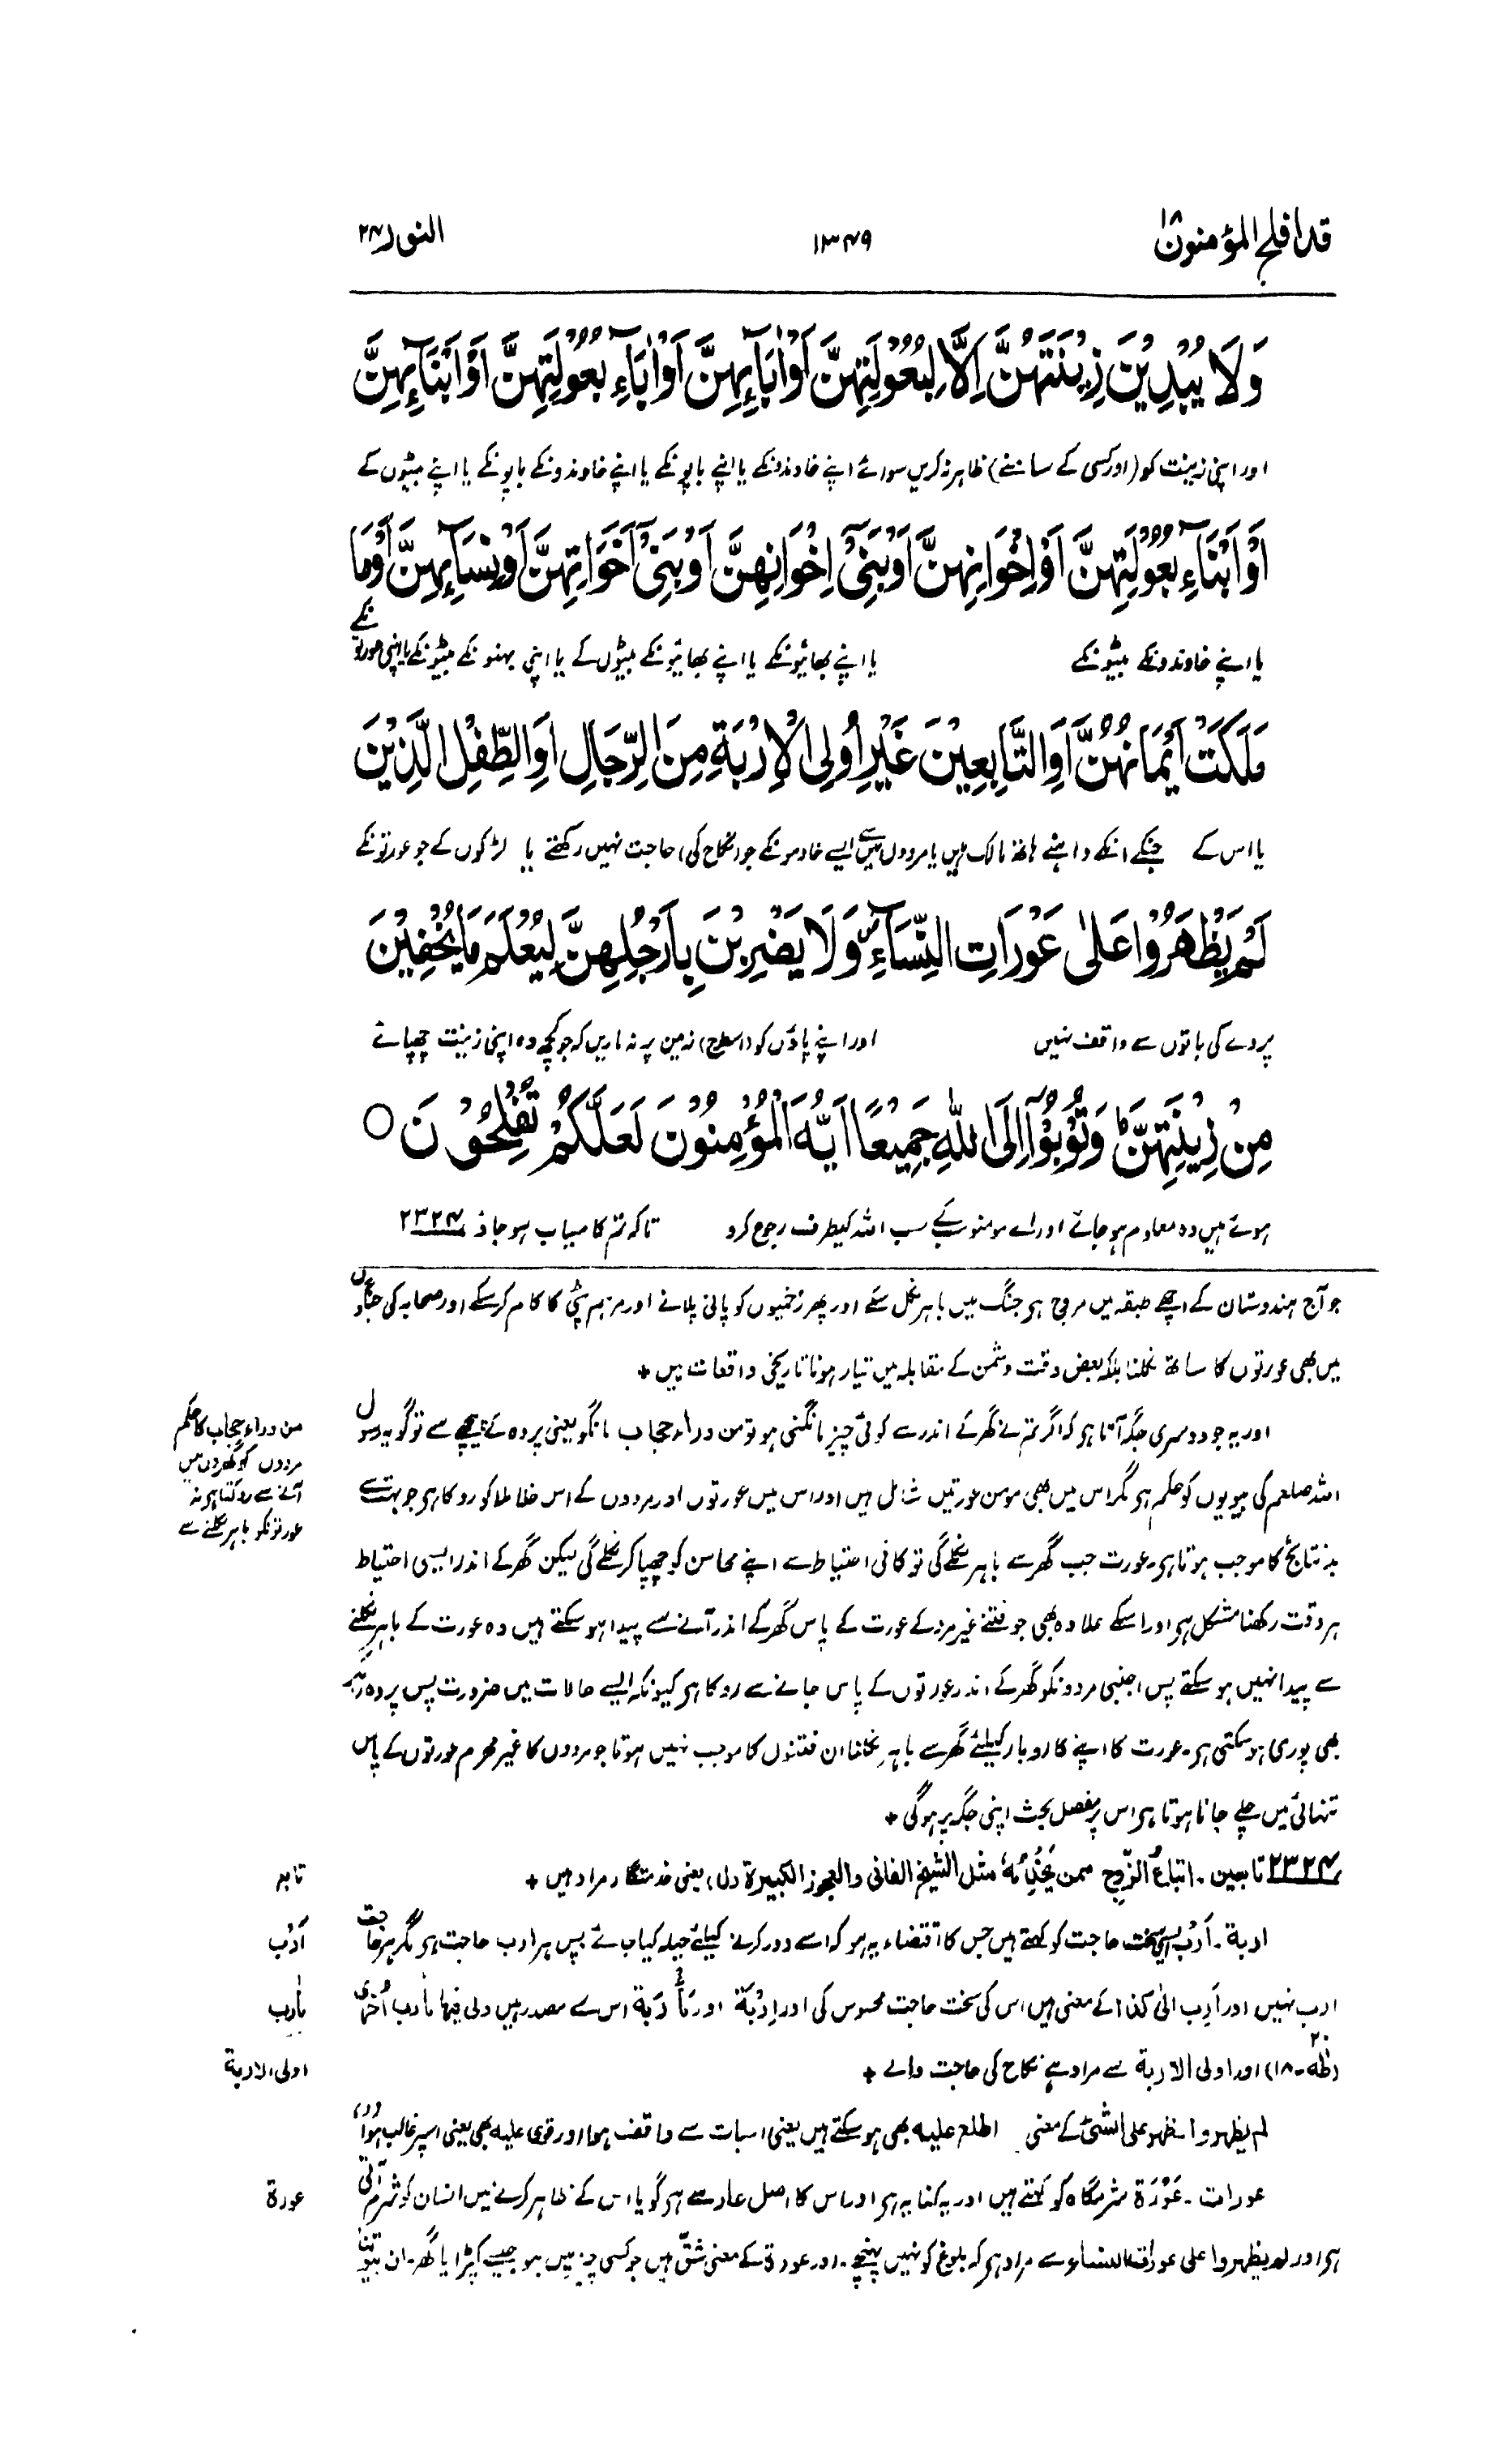 قد افلح المؤمنون ۱۸
۱۳۴۹
النور ۲۴
وَلَا يُبْدِيْنَ زِيْنَتَهُنَّ اِلَّا لِبُعُوْلَتِهِنَّ اَوْ اٰبَآئِهِنَّ اَوْ اٰبَآءِ بُعُوْلَتِهِنَّ اَوْ اَبْنَآئِهِنَّ
اور اپنی زینت کو (اور کسی کے سامنے) ظاہر نہ کریں سوائے اپنے خاوندونکے یا اپنے باپونکے یا اپنے خاوندونکے باپونکے یا اپنے بیٹوں کے
اَوْ اَبْنَآءِ بُعُوْلَتِهِنَّ اَوْ اِخْوَانِهِنَّ اَوْ بَنِيْۤ اِخْوَانِهِنَّ اَوْ بَنِيْۤ اَخَوَاتِهِنَّ اَوْ نِسَآئِهِنَّ اَوْ مَا
یا اپنے خاوندونکے بیٹونکے یا اپنے بھائیونکے یا اپنے بھائیونکے بیٹوں کے یا اپنی بہنونکے بیٹونکے یا اپنی عورتونکے
مَلَكَتْ اَيْمَانُهُنَّ اَوِ التَّابِعِيْنَ غَيْرِ اُولِى الْاِرْبَةِ مِنَ الرِّجَالِ اَوِ الطِّفْلِ الَّذِيْنَ
یا اس کے جنکے انکے داہنے ہاتھ مالک ہیں یا مردوں میں سے ایسے خادمونکے جو (نکاح کی) حاجت نہیں رکھتے یا لڑکوں کے جو عورتونکے
لَمْ يَظْهَرُوْا عَلٰى عَوْرَاتِ النِّسَآءِ وَلَا يَضْرِبْنَ بِاَرْجُلِهِنَّ لِيُعْلَمَ مَا يُخْفِيْنَ
پردے کی باتوں سے واقف نہیں اور اپنے پاؤں کو (اسطرح) زمین پر نہ ماریں کہ جو کچھ وہ اپنی زینت چھپائے
مِنْ زِيْنَتِهِنَّ ؕ وَتُوْبُوْۤا اِلَى اللّٰهِ جَمِيْعًا اَيُّهَ الْمُؤْمِنُوْنَ لَعَلَّكُمْ تُفْلِحُوْنَ ○
ہوئے ہیں وہ معلوم ہو جائے اور اے مومنو سب کے سب اللہ کیطرف رجوع کرو تاکہ تم کامیاب ہو جاؤ ۲۳۲۴
جو آج ہندوستان کے اچھے طبقہ میں مروج ہے جنگ میں باہر نکل سکے اور پھر زخمیوں کو پانی پلانے اور مرہم پٹی کا کام کر سکے اور صحابہ کی جنگوں
میں بھی عورتوں کا ساتھ نکلنا بلکہ بعض وقت دشمن کے مقابلہ میں تیار ہونا تاریخی واقعات ہیں +
اور یہ جو دوسری جگہ آتا ہے کہ اگر تم نے گھر کے اندر سے کوئی چیز مانگنی ہو تو من وراء حجاب مانگو یعنی پردہ کے پیچھے سے تو گو یہ رسول
اللہ صلعم کی بیویوں کو حکم ہے مگر اس میں بھی مومن عورتیں شامل ہیں اور اس میں عورتوں اور مردوں کے اس خلا ملا کو روکا ہے جو بہت سے
بد نتایج کا موجب ہوتا ہے۔ عورت جب گھر سے باہر نکلے گی تو کافی احتیاط سے اپنے محاسن کو چھپا کر نکلے گی لیکن گھر کے اندر ایسی احتیاط
ہر وقت رکھنا مشکل ہے اور اسکے علاوہ بھی جو فتنے غیر مرد کے عورت کے پاس گھر کے اندر آنے سے پیدا ہو سکتے ہیں وہ عورت کے باہر نکلنے
سے پیدا نہیں ہو سکتے پس اجنبی مردونکو گھر کے اندر عورتوں کے پاس جانے سے روکا ہے کیونکہ ایسے حالات میں ضرورت پس پردہ رہکر
بھی پوری ہو سکتی ہے۔ عورت کا اپنے کاروبار کیلئے گھر سے باہر نکلنا ان فتنوں کا موجب نہیں ہوتا جو مردوں کا غیر محرم عورتوں کے پاس
تنہائی میں چلے جانا ہوتا ہے اس پر مفصل بحث اپنی جگہ پر ہوگی +
من وراء حجاب کا حکم
مردوں کو گھروں میں
آنے سے روکتا ہے نہ
عورتونکو باہر نکلنے سے
۲۳۲۴ تابعین۔ اتباعُ الزّوج ممن یخدُمُه مثل الشیخ الفانی والعجوز الکبیرة (ل) یعنی خدمتگار مراد ہیں +
تابع
اربة۔ اَرَبٌ ایسی سخت حاجت کو کہتے ہیں جس کا اقتضاء یہ ہو کہ اسے دور کرنے کیلئے حیلہ کیا جائے پس ہر ارب حاجت ہے مگر ہر حاجت
اَرَب
ارب نہیں اور اَرِب الیٰ کذا کے معنی ہیں اس کی سخت حاجت محسوس کی اور اِرْبَة اور مَأْرُبَة اس سے مصدر ہیں ولی فیھا مآرب اُخریٰ
مآرب
(طٰهٰ ۲۰۔۱۸) اور اولی الاربة سے مراد ہے نکاح کی حاجت والے +
اولی الاربة
لم یظھروا۔ ظھر علی الشیٔ کے معنی اطلع علیه بھی ہو سکتے ہیں یعنی اسبات سے واقف ہوا اور قوی علیه بھی یعنی اسپر غالب ہوا (ر)
عورات۔ عَوْرَة شرمگاہ کو کہتے ہیں اور یہ کنایہ ہے اور اس کا اصل عار سے ہے گویا اس کے ظاہر کرنے میں انسان کو شرم آتی
عورة
ہے اور لم یظھروا علی عورات النساء سے مراد ہے کہ بلوغ کو نہیں پہنچے۔ اور عورة کے معنی شقّ ہیں جو کسی چیز میں ہو جیسے کپڑا یا گھر۔ ان بیوتنا